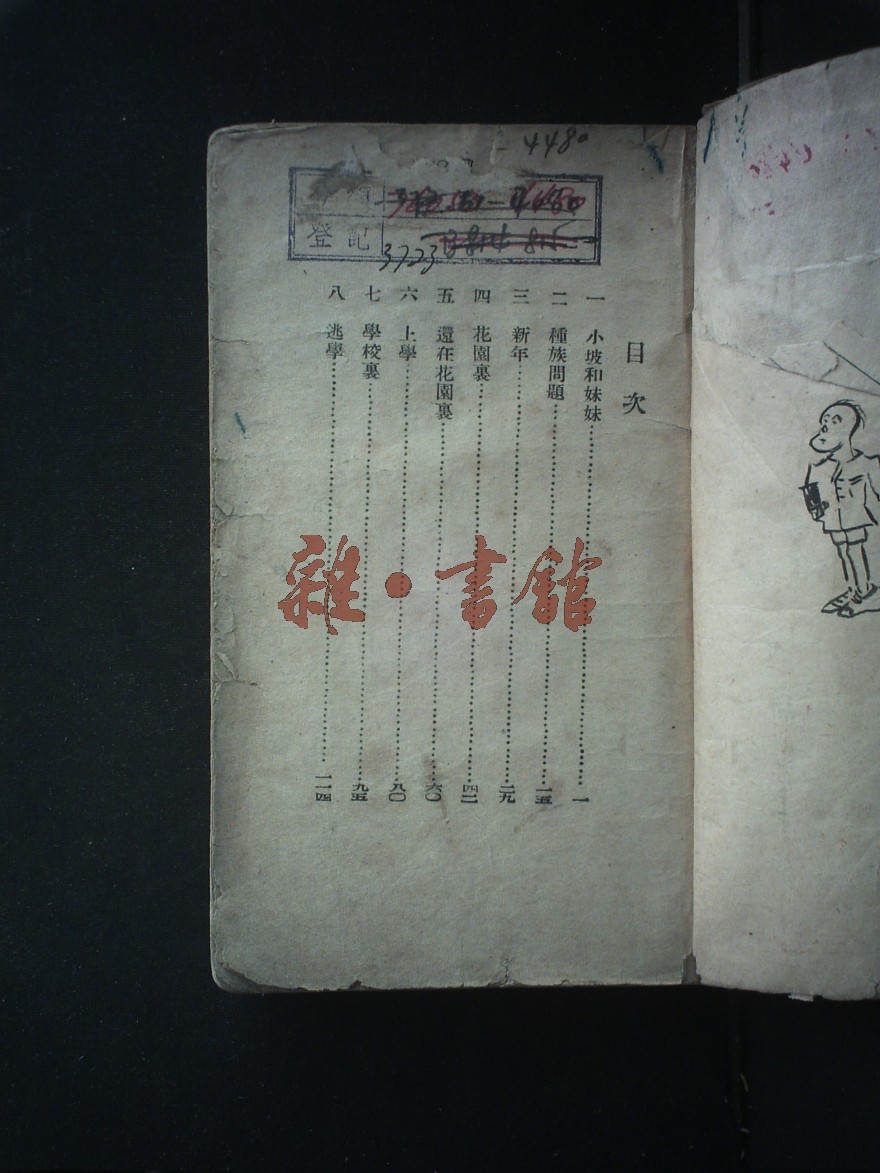 4480
登記
3723
目次
一 小坡和妹妹 一
二 種族問題 一五
三 新年 二九
四 花園裏 四二
五 還在花園裏 六〇
六 上學 八〇
七 學校裏 九五
八 逃學 一一四
雜·書館